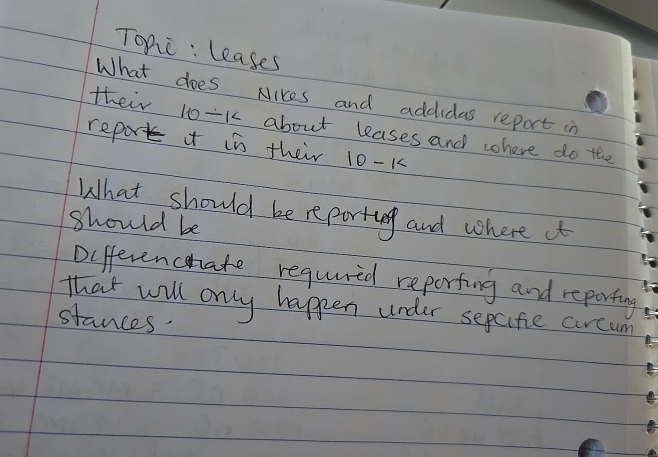 Topic : leases
What does Nikes and addidas report in
their 10-K about leases and where do the
report it in their 10-K
What should be reporting and where it
should be
Differenctiate required reporting and reporting
that will only happen under sepcific circum
stances.